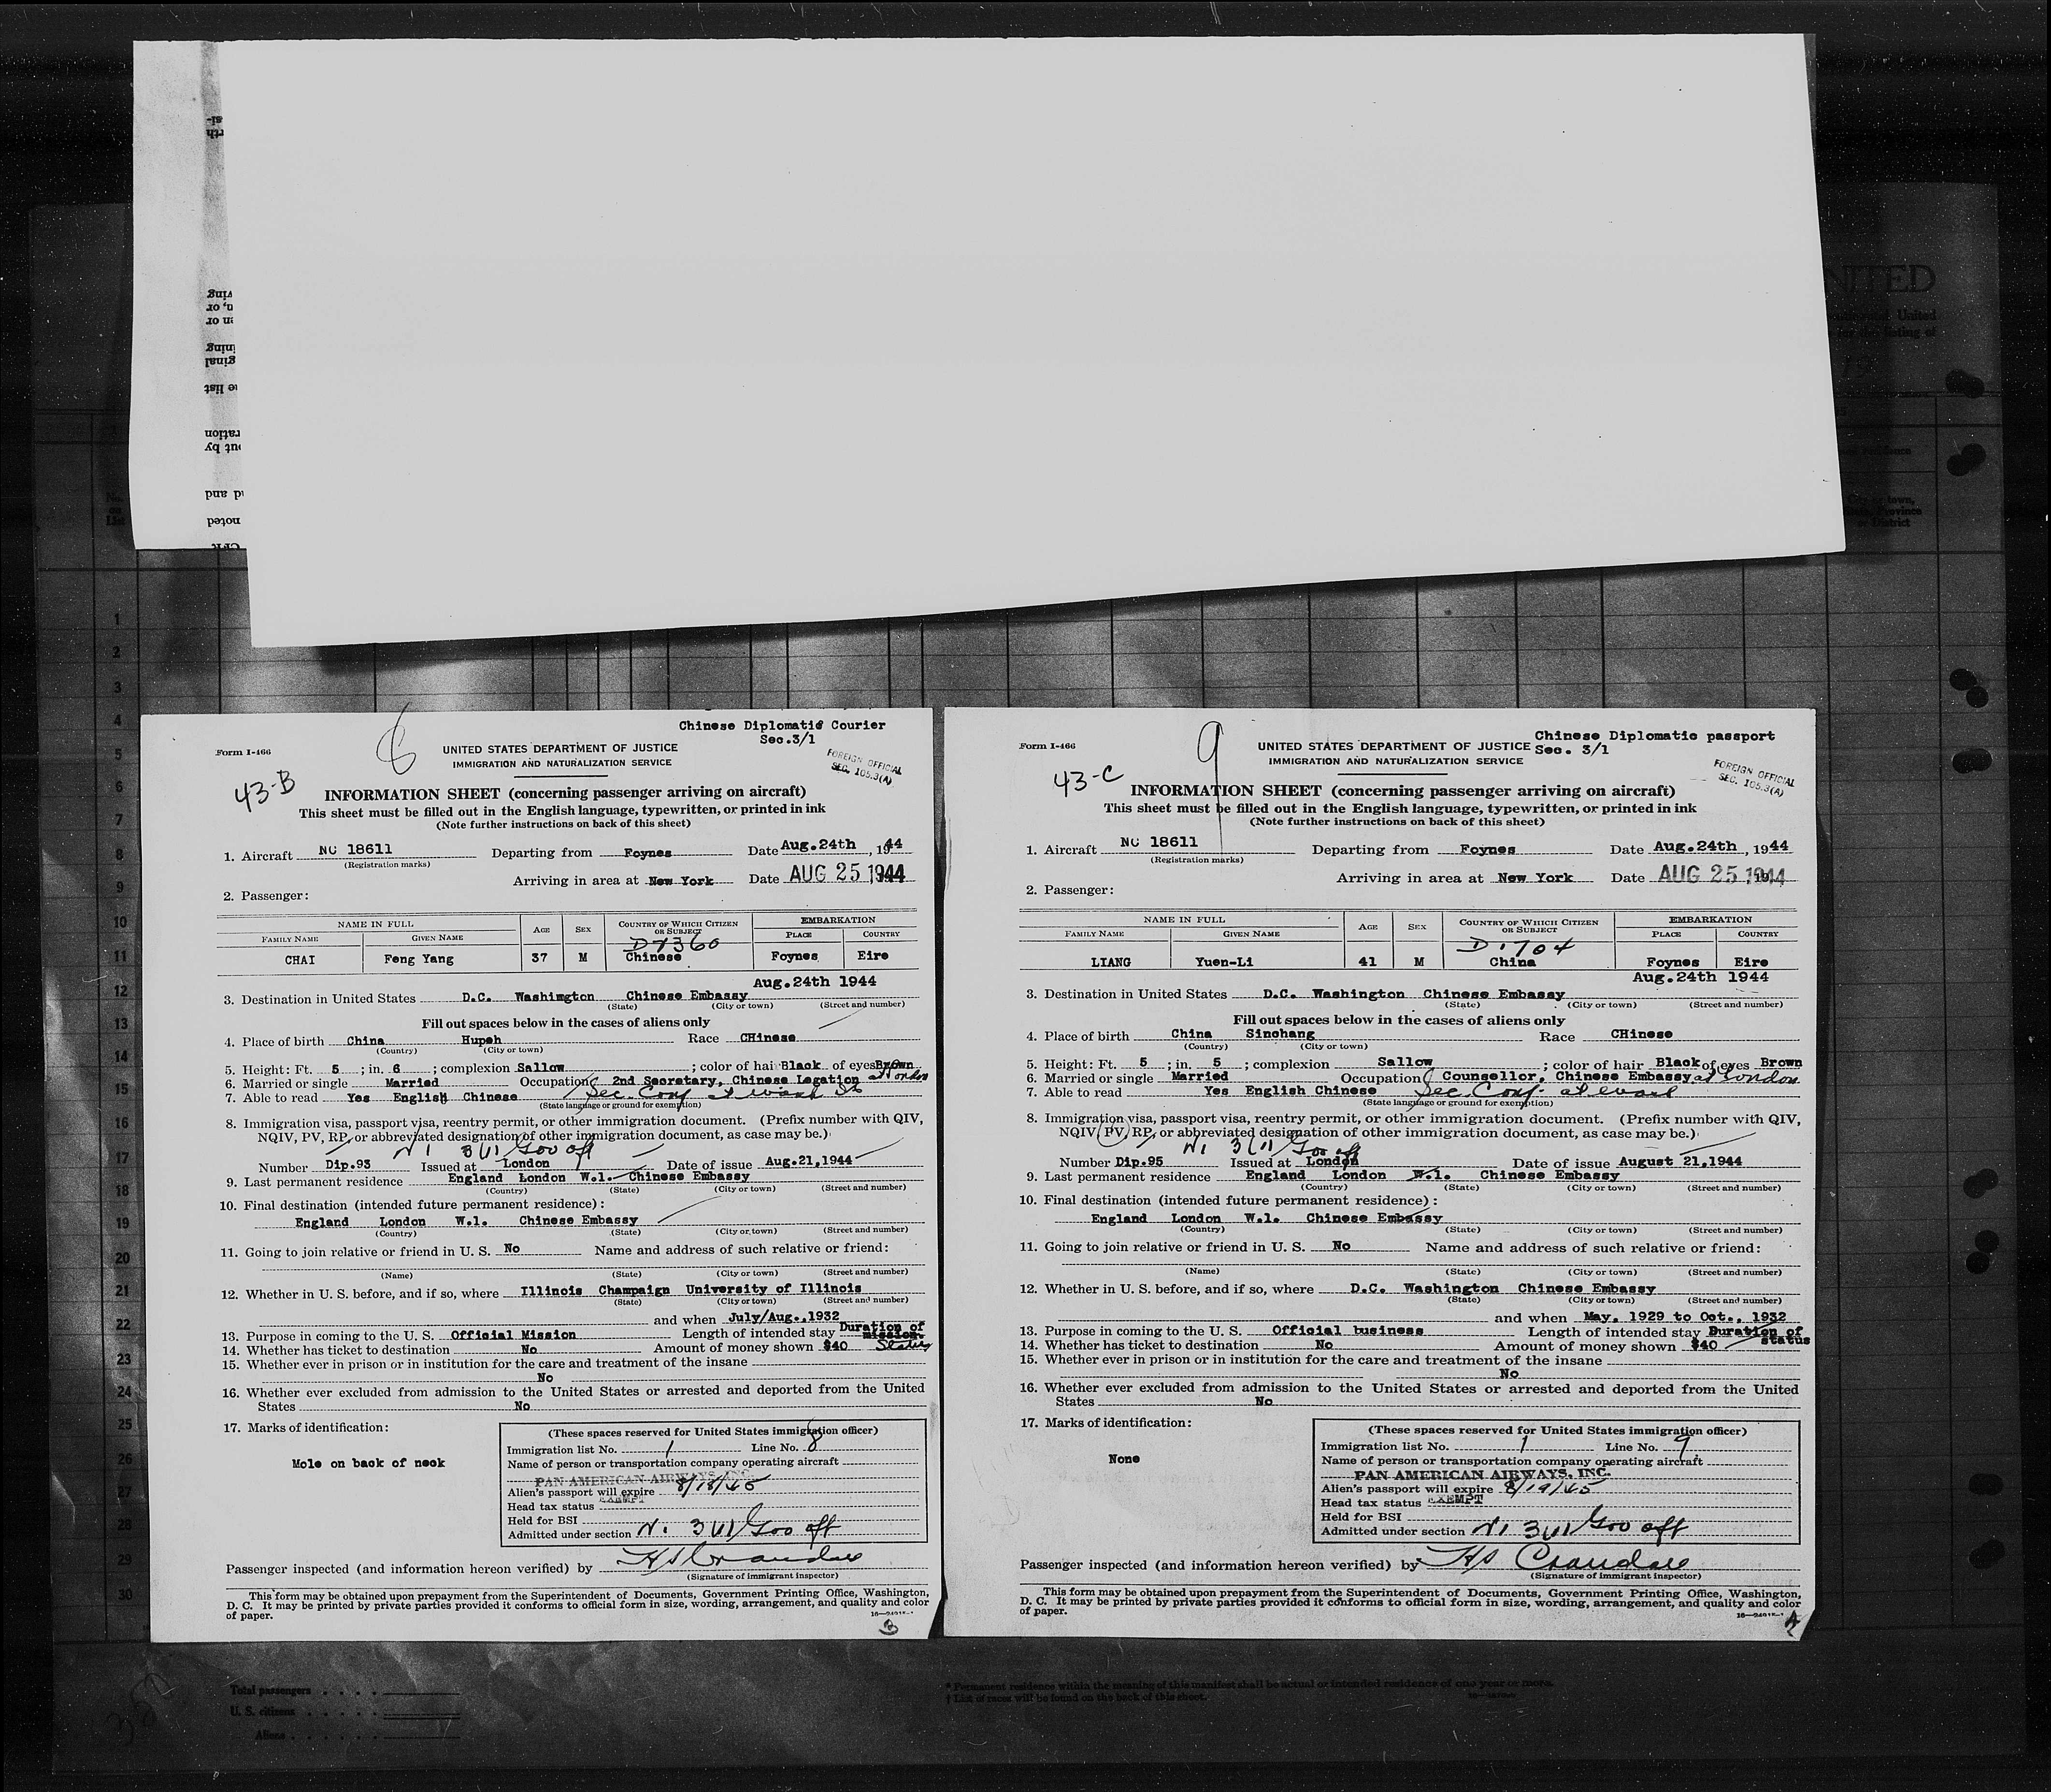 Chinese Diplomatic Courier
Sec.3/1
Form I-466
6
UNITED STATES DEPARTMENT OF JUSTICE
IMMIGRATION AND NATURALIZATION SERVICE
FOREIGN OFFICIAL
SEC. 105.3(A)
43-B
INFORMATION SHEET (concerning passenger arriving on aircraft)
This sheet must be filled out in the English language, typewritten, or printed in ink
(Note further instructions on back of this sheet)
1. Aircraft NC 18611 Departing from Foynes Date Aug.24th, 1944
(Registration marks)
Arriving in area at New York Date AUG 25 1944
2. Passenger:
NAME IN FULL AGE SEX COUNTRY OF WHICH CITIZEN OR SUBJECT EMBARKATION
FAMILY NAME GIVEN NAME PLACE COUNTRY
D7360
CHAI Feng Yang 37 M Chinese Foynes Eire
Aug.24th 1944
3. Destination in United States D.C. Washington Chinese Embassy
(State) (City or town) (Street and number)
Fill out spaces below in the cases of aliens only
4. Place of birth China Hupeh Race CHinese
(Country) (City or town)
5. Height: Ft. 5 ; in. 6 ; complexion Sallow ; color of hai Black of eyes Brown
6. Married or single Married Occupation 2nd Secretary, Chinese Legation at London
7. Able to read Yes English Chinese Sec. Conf at
(State language or ground for exemption)
8. Immigration visa, passport visa, reentry permit, or other immigration document. (Prefix number with QIV,
NQIV, PV, RP, or abbreviated designation of other immigration document, as case may be.)
3(1) Gov off
Number Dip.93 Issued at London Date of issue Aug.21,1944
9. Last permanent residence England London W.1. Chinese Embassy
(Country) (State) (City or town) (Street and number)
10. Final destination (intended future permanent residence):
England London W.1. Chinese Embassy
(Country) (State) (City or town) (Street and number)
11. Going to join relative or friend in U. S. No Name and address of such relative or friend:
(Name) (State) (City or town) (Street and number)
12. Whether in U. S. before, and if so, where Illinois Champaign University of Illinois
(State) (City or town) (Street and number)
and when July/Aug.,1932
13. Purpose in coming to the U. S. Official Mission Length of intended stay Duration of mission. Status
14. Whether has ticket to destination No Amount of money shown $40
15. Whether ever in prison or in institution for the care and treatment of the insane
No
16. Whether ever excluded from admission to the United States or arrested and deported from the United
States No
17. Marks of identification:
Mole on back of neck
(These spaces reserved for United States immigration officer)
Immigration list No. 1 Line No. 8
Name of person or transportation company operating aircraft
PAN AMERICAN AIRWAYS, INC.
Alien's passport will expire 8/18/45
Head tax status EXEMPT
Held for BSI
Admitted under section 3(1) Gov off
Passenger inspected (and information hereon verified) by HS Crandall
(Signature of immigrant inspector)
This form may be obtained upon prepayment from the Superintendent of Documents, Government Printing Office, Washington,
D. C. It may be printed by private parties provided it conforms to official form in size, wording, arrangement, and quality and color
of paper.
Chinese Diplomatic passport
Sec. 3/1
Form I-466
9
UNITED STATES DEPARTMENT OF JUSTICE
IMMIGRATION AND NATURALIZATION SERVICE
FOREIGN OFFICIAL
SEC. 105.3(A)
43-C
INFORMATION SHEET (concerning passenger arriving on aircraft)
This sheet must be filled out in the English language, typewritten, or printed in ink
(Note further instructions on back of this sheet)
1. Aircraft NC 18611 Departing from Foynes Date Aug.24th, 1944
(Registration marks)
Arriving in area at New York Date AUG 25 1944
2. Passenger:
NAME IN FULL AGE SEX COUNTRY OF WHICH CITIZEN OR SUBJECT EMBARKATION
FAMILY NAME GIVEN NAME PLACE COUNTRY
D1704
LIANG Yuen-Li 41 M China Foynes Eire
Aug.24th 1944
3. Destination in United States D.C. Washington Chinese Embassy
(State) (City or town) (Street and number)
Fill out spaces below in the cases of aliens only
4. Place of birth China Sinchang Race CHinese
(Country) (City or town)
5. Height: Ft. 5 ; in. 5 ; complexion Sallow ; color of hair Black of eyes Brown
6. Married or single Married Occupation Counsellor, Chinese Embassy at London
7. Able to read Yes English Chinese Sec. Conf. at
(State language or ground for exemption)
8. Immigration visa, passport visa, reentry permit, or other immigration document. (Prefix number with QIV,
NQIV, PV, RP, or abbreviated designation of other immigration document, as case may be.)
3(1) Gov off
Number Dip.95 Issued at London Date of issue August 21,1944
9. Last permanent residence England London W.1. Chinese Embassy
(Country) (State) (City or town) (Street and number)
10. Final destination (intended future permanent residence):
England London W.1. Chinese Embassy
(Country) (State) (City or town) (Street and number)
11. Going to join relative or friend in U. S. No Name and address of such relative or friend:
(Name) (State) (City or town) (Street and number)
12. Whether in U. S. before, and if so, where D.C. Washington Chinese Embassy
(State) (City or town) (Street and number)
and when May, 1929 to Oct., 1932
13. Purpose in coming to the U. S. Official business Length of intended stay Duration of status
14. Whether has ticket to destination No Amount of money shown $40
15. Whether ever in prison or in institution for the care and treatment of the insane
No
16. Whether ever excluded from admission to the United States or arrested and deported from the United
States No
17. Marks of identification:
None
(These spaces reserved for United States immigration officer)
Immigration list No. 1 Line No. 9
Name of person or transportation company operating aircraft
PAN AMERICAN AIRWAYS, INC.
Alien's passport will expire 8/19/45
Head tax status EXEMPT
Held for BSI
Admitted under section 3(1) Gov off
Passenger inspected (and information hereon verified) by HS Crandall
(Signature of immigrant inspector)
This form may be obtained upon prepayment from the Superintendent of Documents, Government Printing Office, Washington,
D. C. It may be printed by private parties provided it conforms to official form in size, wording, arrangement, and quality and color
of paper.
Total passengers
U. S. citizens
Aliens
* Permanent residence within the meaning of this manifest shall be actual or intended residence of one year or more.
† List of races will be found on the back of this sheet.